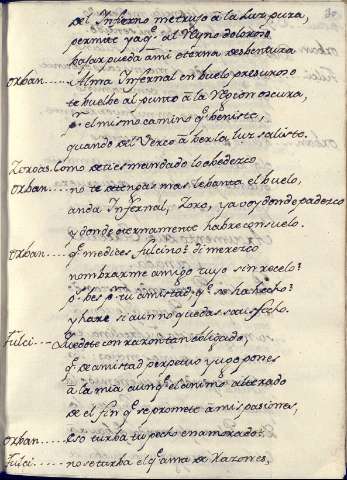 del Infierno me truxo â la luz pura,
permite ya q̃ al Reyno doloroso
baxar pueda a mi eterna desbentura
Orban..... Alma Infernal en buelo presuroso
te buelbe al punto â la Region oscura,
pr el mismo camino q̃ beniste,
quando del Verco a ber la luz saliste.
Zoroas. Como de ties mandado lo obedezco
Orban.... no te detengas mas lebanta el buelo,
anda Infernal, Zoro, ya voy donde padezco
y donde eternamente habre consuelo.
Orban.... q̃ me dices fulcino? di merezco
nombrarme amigo tuyo sin rezelo?
pr tu amistad q̃ se ha hecho?
y hare si aun no quedas satisfecho.
Fulci.... Quedote con razon tan obligado,
q̃ de amistad perpetuo yugo pones
â la mia aunq̃ el animo alterado
de el fin q̃ se promete a mis pasiones,
Orban..... eso turba tu pecho enamorado?
Fulci..... no se turba el q̃ ama de razones,